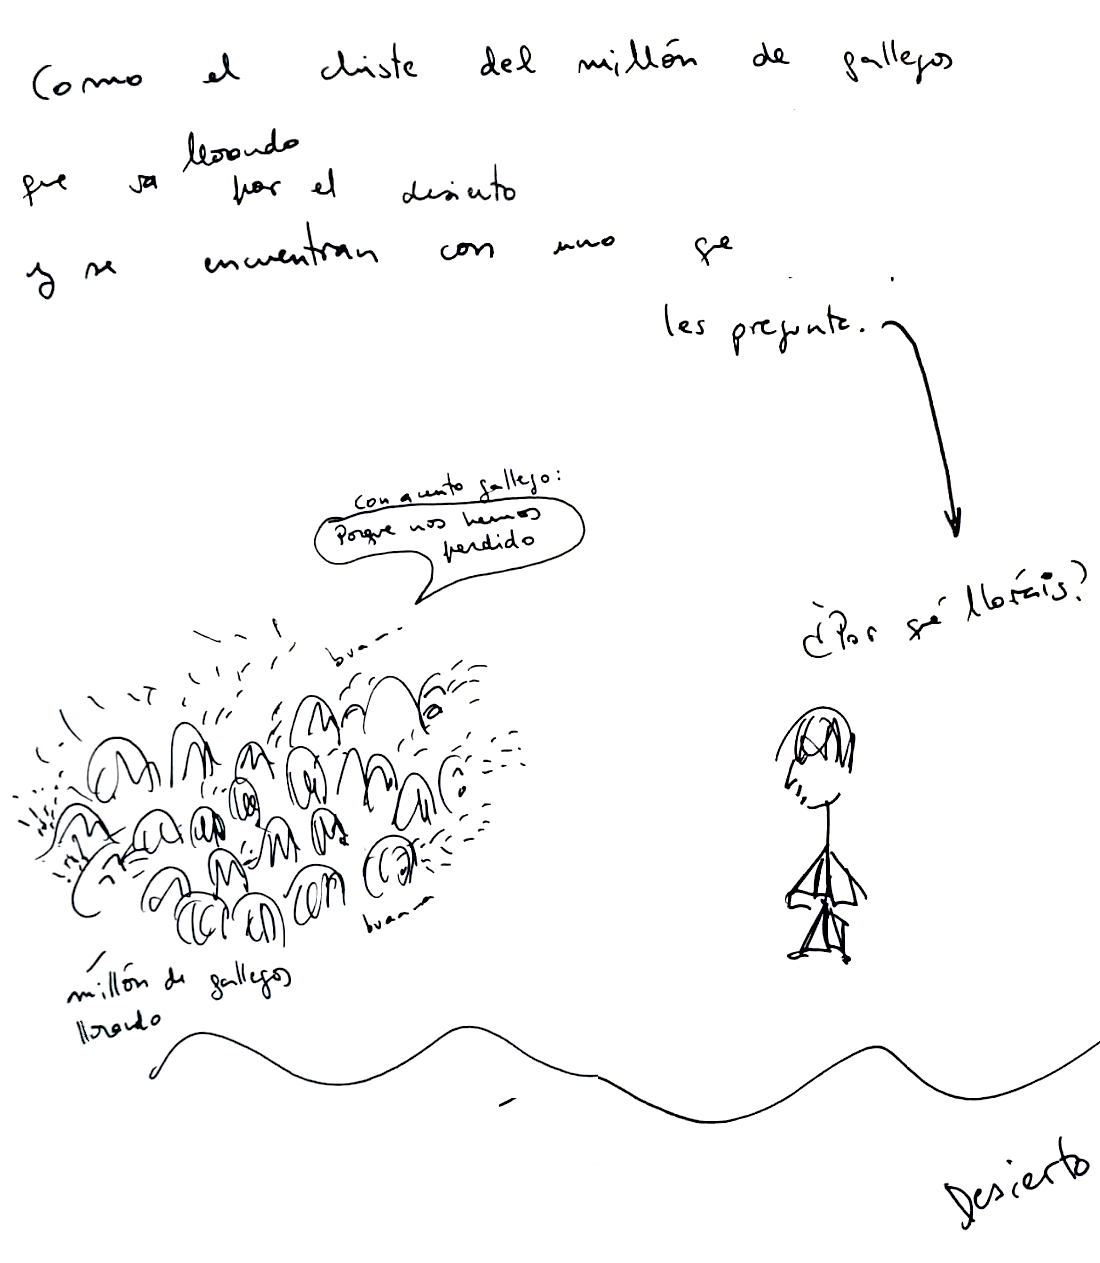 Como el chiste del millón de gallegos
que va llorando por el desierto
y se encuentran con uno que
les pregunta.
Con acento gallego:
Porque nos hemos
perdido
¿Por qué lloráis?
buaaa
buaaaa
millón de gallegos
llorando
Desierto